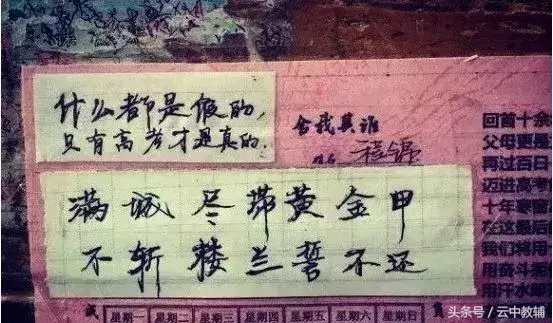 什么都是假的,
只有高考才是真的.
舍我其谁
满城尽带黄金甲
不斩楼兰誓不还
回首十余
父母更是
再过百日
迈进高考
十年寒窗
在这最后
我们将用
用奋斗
用汗水
星期一 星期二 星期三 星期四 星期五 星期六 星期日
头条号 / 云中教辅